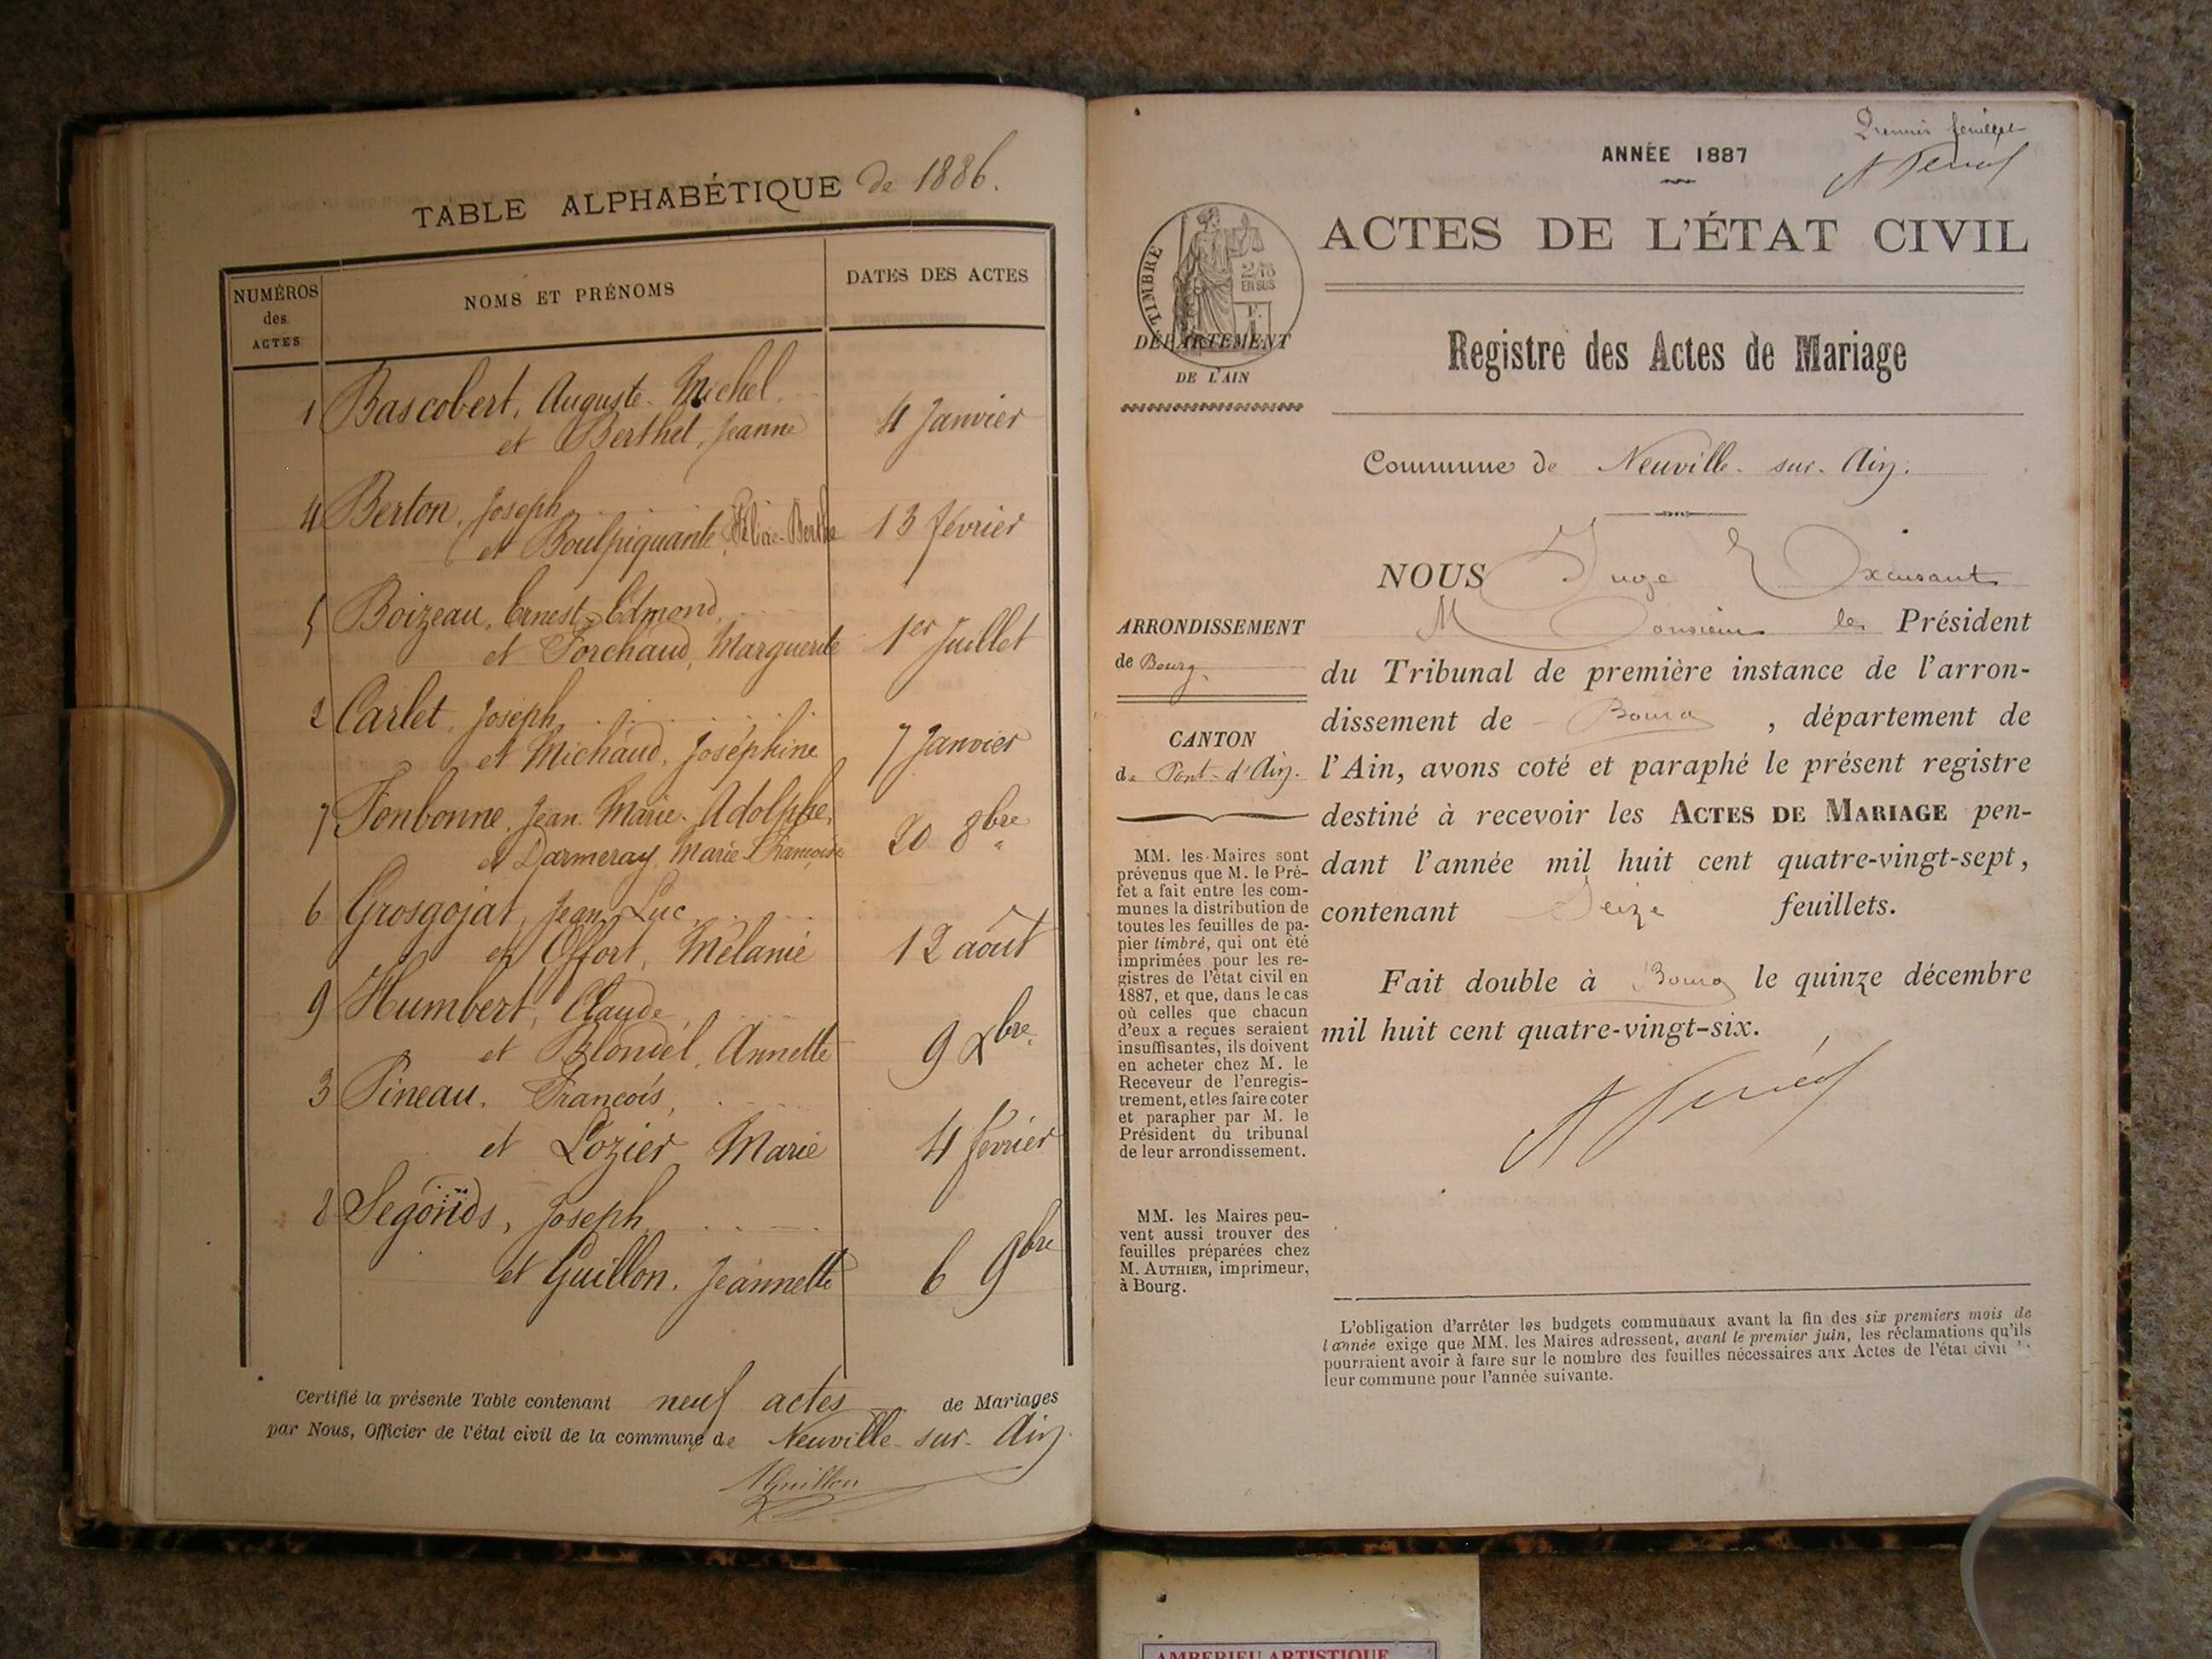 TABLE ALPHABÉTIQUE de 1886.
NUMÉROS des ACTES
NOMS ET PRÉNOMS
DATES DES ACTES
1 Bascobert, Auguste-Michel,
et Berthet, Jeanne 4 Janvier
4 Berton, Joseph,
et Boulpiquante, Félicie-Berthe 13 février
5 Boizeau, Ernest-Edmond,
et Forchaud, Marguerite 1er Juillet
2 Carlet, Joseph,
et Michaud, Joséphine 7 Janvier
7 Fonbonne, Jean-Marie-Adolphe,
et Darmeray, Marie-Françoise 20 8bre
6 Grosgojat, Jean-Luc,
et Offort, Mélanie 12 août
9 Humbert, Claude,
et Blondel, Annette 9 Xbre.
3 Pineau, François,
et Lozier Marie 4 février
8 Segonds, Joseph
et Guillon, Jeannette 6 9bre
Certifié la présente Table contenant neuf actes de Mariages
par Nous, Officier de l'état civil de la commune de Neuville-sur-Ain.
Guillon
Premier feuillet
ANNÉE 1887
ACTES DE L'ÉTAT CIVIL
TIMBRE
2/10
EN SUS
DÉPARTEMENT
DE L'AIN
Registre des Actes de Mariage
Commune de Neuville-sur-Ain.
NOUS Juge
Monsieur le Président
du Tribunal de première instance de l'arron-
dissement de Bourg, département de
l'Ain, avons coté et paraphé le présent registre
destiné à recevoir les ACTES DE MARIAGE pen-
dant l'année mil huit cent quatre-vingt-sept,
contenant Seize feuillets.
Fait double à Bourg le quinze décembre
mil huit cent quatre-vingt-six.
ARRONDISSEMENT
de Bourg.
CANTON
de Pont-d'Ain.
MM. les Maires sont
prévenus que M. le Pré-
fet a fait entre les com-
munes la distribution de
toutes les feuilles de pa-
pier timbré, qui ont été
imprimées pour les re-
gistres de l'état civil en
1887, et que, dans le cas
où celles que chacun
d'eux a reçues seraient
insuffisantes, ils doivent
en acheter chez M. le
Receveur de l'enregis-
trement, et les faire coter
et parapher par M. le
Président du tribunal
de leur arrondissement.
MM. les Maires peu-
vent aussi trouver des
feuilles préparées chez
M. AUTHIER, imprimeur,
à Bourg.
L'obligation d'arrêter les budgets communaux avant la fin des six premiers mois de
l'année exige que MM. les Maires adressent, avant le premier juin, les réclamations qu'ils
pourraient avoir à faire sur le nombre des feuilles nécessaires aux Actes de l'état civil
leur commune pour l'année suivante.
AMBERIEU ARTISTIQUE